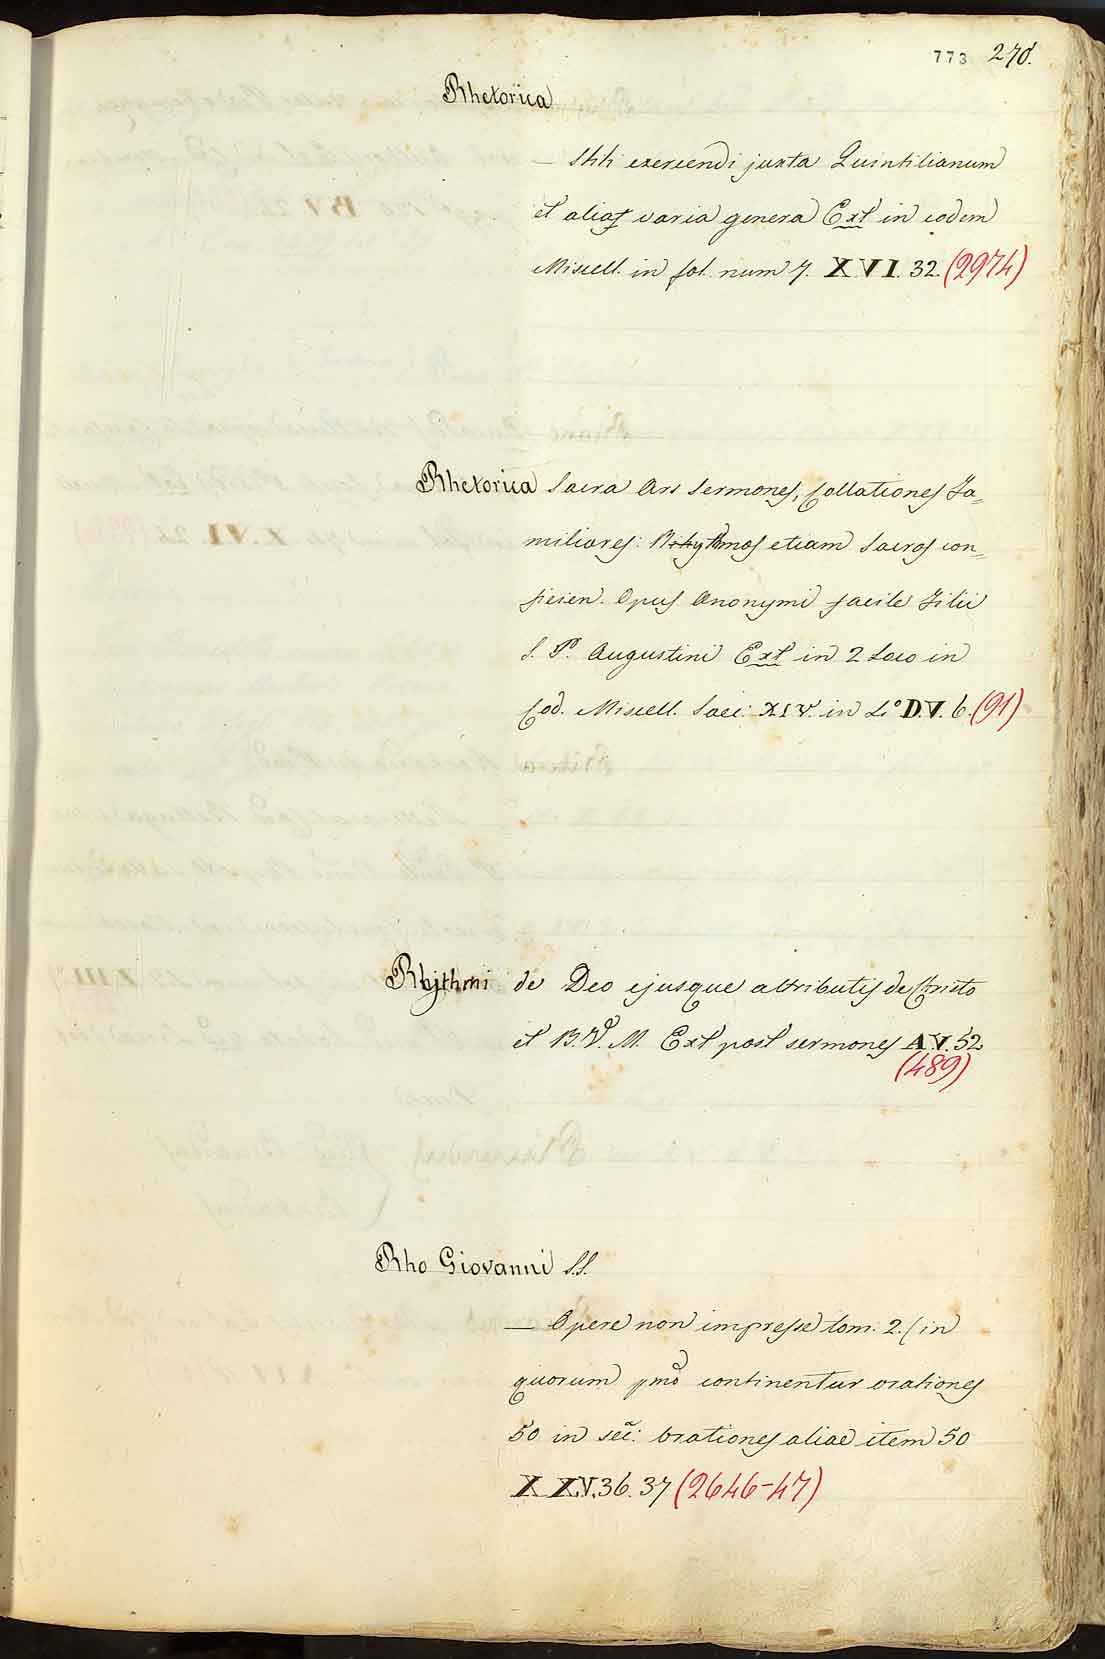 773 270.
Rhetorica
— Stili exercendi juxta Quintilianum
et alios varia genera Ext in eodem
Miscell. in fol. num 7. XVI. 32. (2974)
Rhetorica Sacra Ars Sermones, Collationes Fa=
miliares: Rihythmos etiam Sacros con=
ficien. Opus Anonymi facile Filii
S. P. Augustini Ext in 2 Loco in
Cod. Miscell. Saec. XIV. in 4.° D.V. 6. (91)
Rhythmi de Deo ejusque attributis de Christo
et B. V. M. Ext post sermones A.V. 52
(489)
Rho Giovanni S.J.
— Opere non impresse tom. 2. (in
quorum pmo continentur orationes
50 in sec: orationes aliae item 50
X X.V. 36. 37 (2646-47)